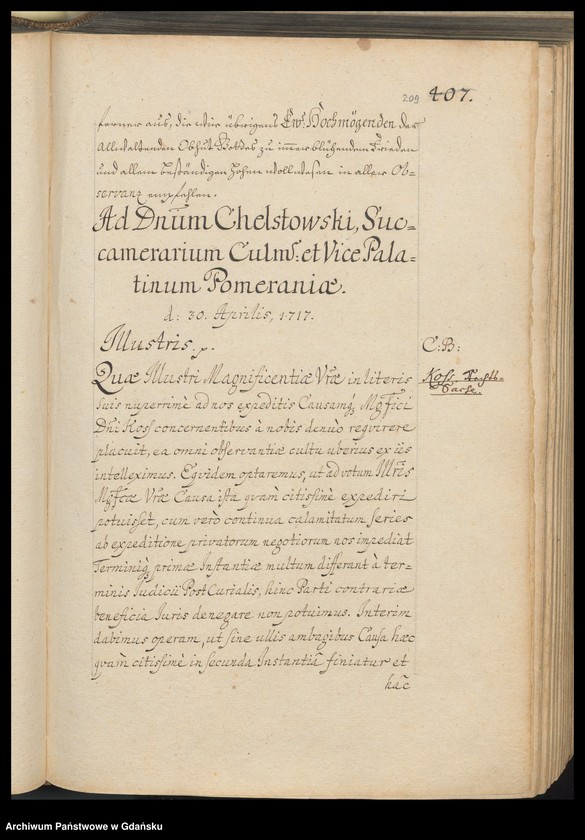 209 407.
ferner aus, die wir übrigens Ew. Hochmögenden der
allwaltenden Obhut Gottes zu immerblühendem Frieden
und allem beständigen hohen wollwesen in aller Ob=
servanz empfehlen.
Ad Dnum Chelstowski, Suc=
camerarium Culms: et Vice Pala=
tinum Pomeraniæ.
d: 30. Aprilis, 1717.
Illustris.
C: B:
Quæ Illustri Magnificentiæ Vræ in literis
Koss.
suis nuperrimè ad nos expeditis Causamq; Mgfici
Dni Koss concernentibus à nobis denuò reqvirere
placuit, ea omni observantiæ cultu uberius ex iis
intelleximus. Eqvidem optaremus, ut ad votum Illris
Mgfcæ Vræ Causa ista qvam citissimè expediri
potuisset, cum verò continua calamitatum series
ab expeditione privatorum negotiorum nos impediat
Terminiq; primæ Instantiæ multum differant à ter=
minis Judicii PostCurialis, hinc Parti contrariæ
beneficia Juris denegare non potuimus. Interim
dabimus operam, ut sine ullis ambagibus Causa hæc
qvam citissimè in secunda Instantiâ finiatur et
hâc
Archiwum Państwowe w Gdańsku